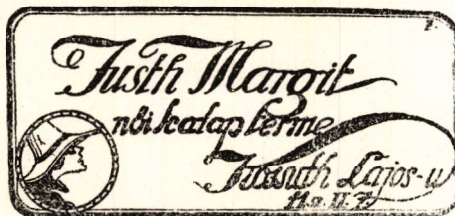 Justh Margit
női kalap terme
Kossuth Lajos-u